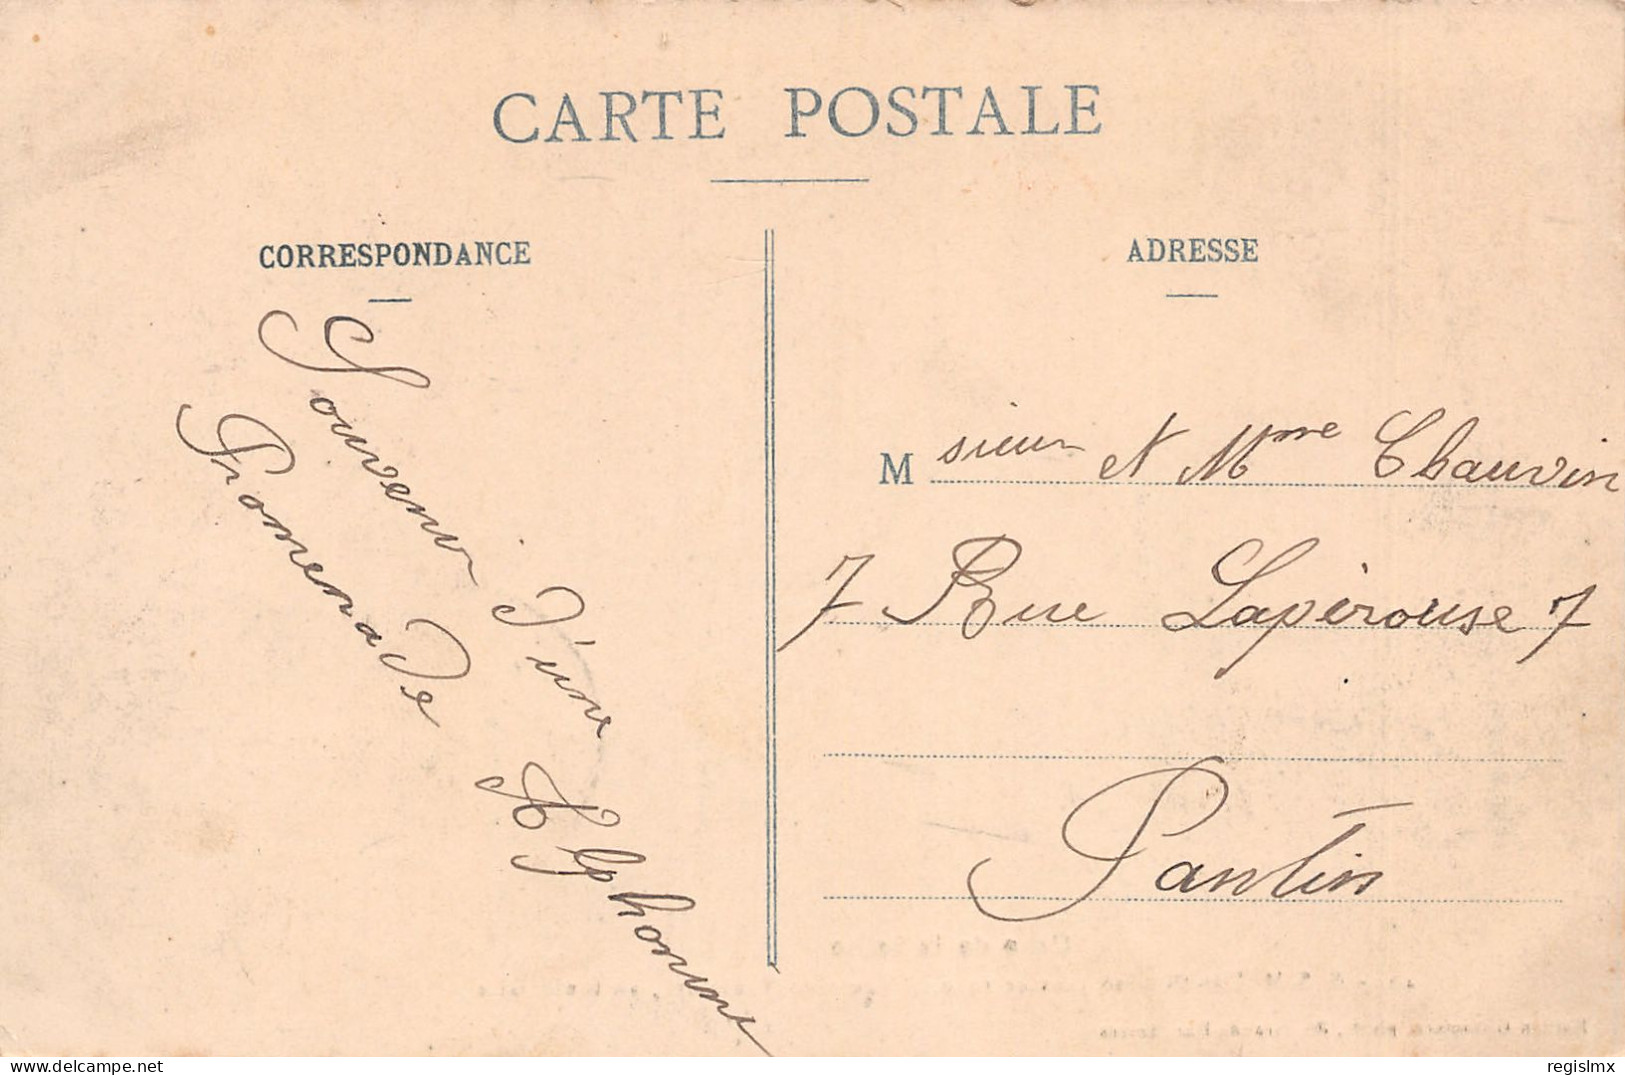 CARTE POSTALE
CORRESPONDANCE
Souvenir d'une
Promenade
Alphonsine
ADRESSE
Msieur et Mme Chauvin
7 Rue Lapérouse 7
Pantin
regislmx